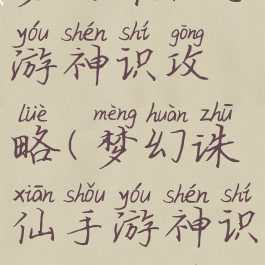 yóu shén shí gōng
游神识攻
lüè mèng huàn zhū
略(梦幻诛
xiān shǒu yóu shén shí
仙手游神识